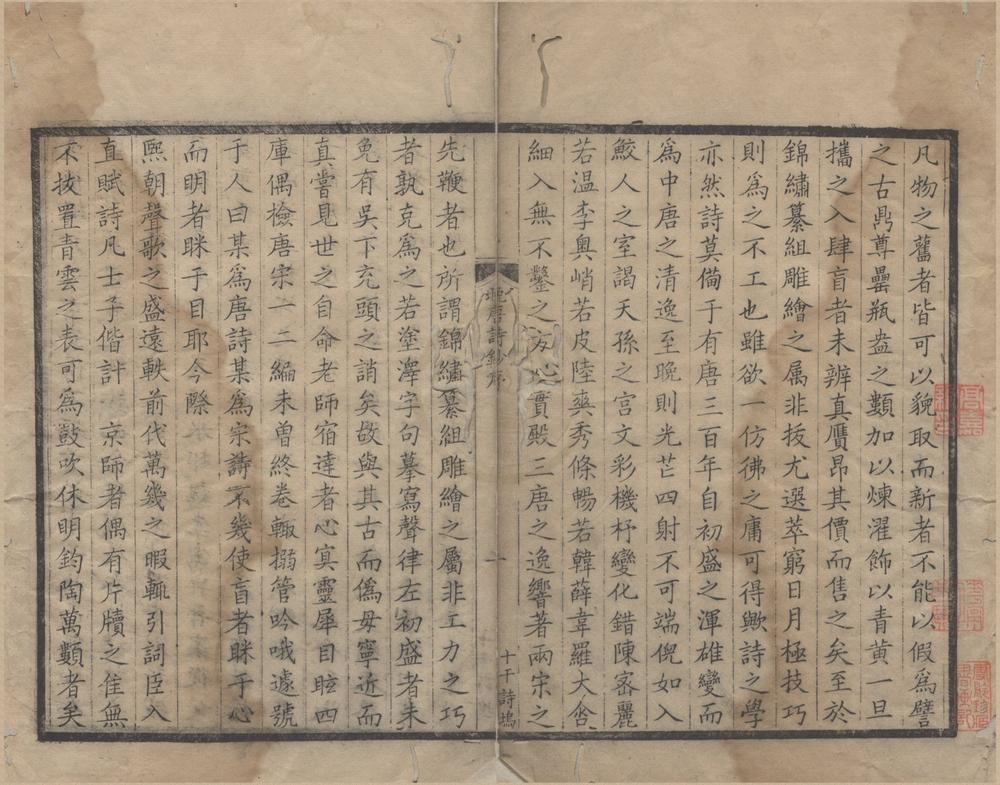 凡物之舊者皆可以貌取而新者不能以假為譬
之古鼎尊罍瓶盎之類加以煉濯飾以青黃一旦
攜之入肆盲者未辨真贋昂其價而售之矣至於
錦繡纂組雕繪之属非拔尤選萃窮日月極技巧
則為之不工也雖欲一仿彿之庸可得歟詩之學
亦然詩莫備于有唐三百年自初盛之渾雄變而
為中唐之清逸至晚則光芒四射不可端倪如入
鮫人之室謁天孫之宮文彩機杼變化錯陳密麗
若溫李奧峭若皮陸爽秀條暢若韓薛韋羅大都
細入無不鑿之方心實殿三唐之逸響著兩宋之
晚唐詩鈔序
一
十干詩塢
先鞭者也所謂錦繡纂組雕繪之屬非工力之巧
者孰克為之若塗澤字句摹寫聲律左初盛者未
免有吳下充頭之誚矣故與其古而僞毋寧近而
真嘗見世之自命老師宿達者心寘靈犀目眩四
庫偶檢唐宋一二編未曾終卷輙搦管吟哦遽號
于人曰某為唐詩某為宋詩不幾使盲者眯于心
而明者眯于目耶今際
熙朝聲歌之盛遠軼前代萬幾之暇輒引詞臣入
直賦詩凡士子偕計京師者偶有片牘之佳無
不拔置青雲之表可為鼓吹休明鈞陶萬類者矣